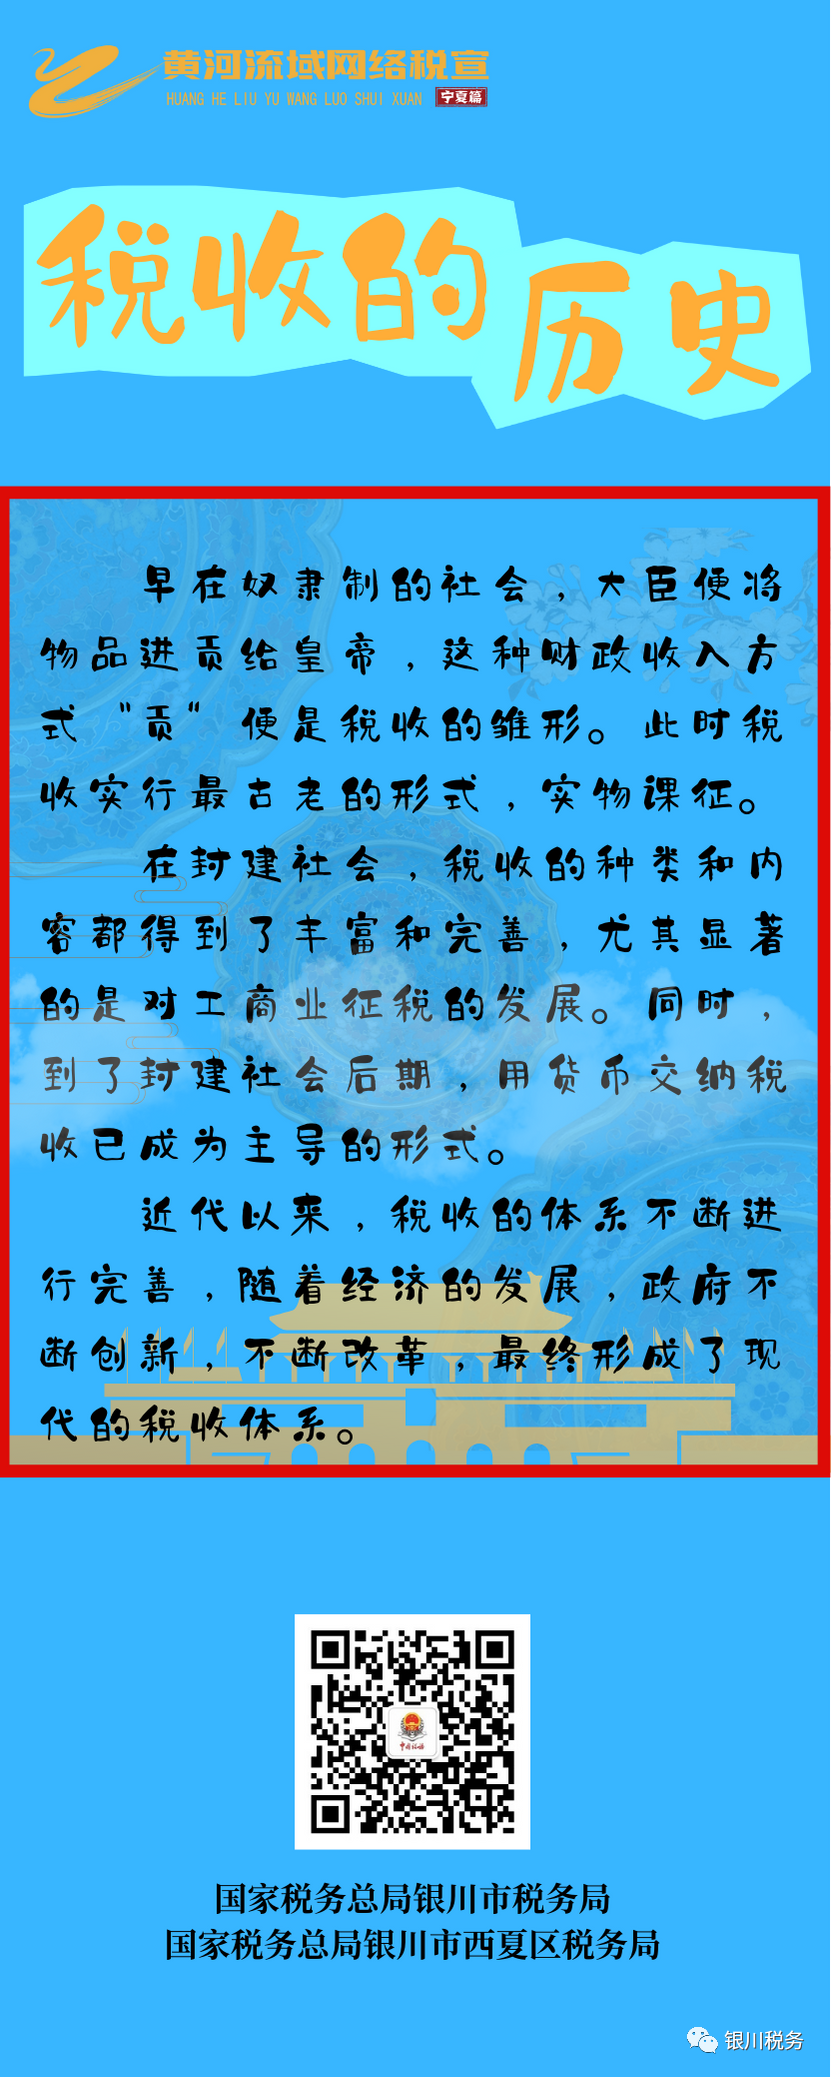 黄河流域网络税宣
HUANG HE LIU YU WANG LUO SHUI XUAN
宁夏篇
税收的
历史
早在奴隶制的社会，大臣便将
物品进贡给皇帝，这种财政收入方
式“贡”便是税收的雏形。此时税
收实行最古老的形式，实物课征。
在封建社会，税收的种类和内
容都得到了丰富和完善，尤其显著
的是对工商业征税的发展。同时，
到了封建社会后期，用货币交纳税
收已成为主导的形式。
近代以来，税收的体系不断进
行完善，随着经济的发展，政府不
断创新，不断改革，最终形成了现
代的税收体系。
中国税务
国家税务总局银川市税务局
国家税务总局银川市西夏区税务局
银川税务